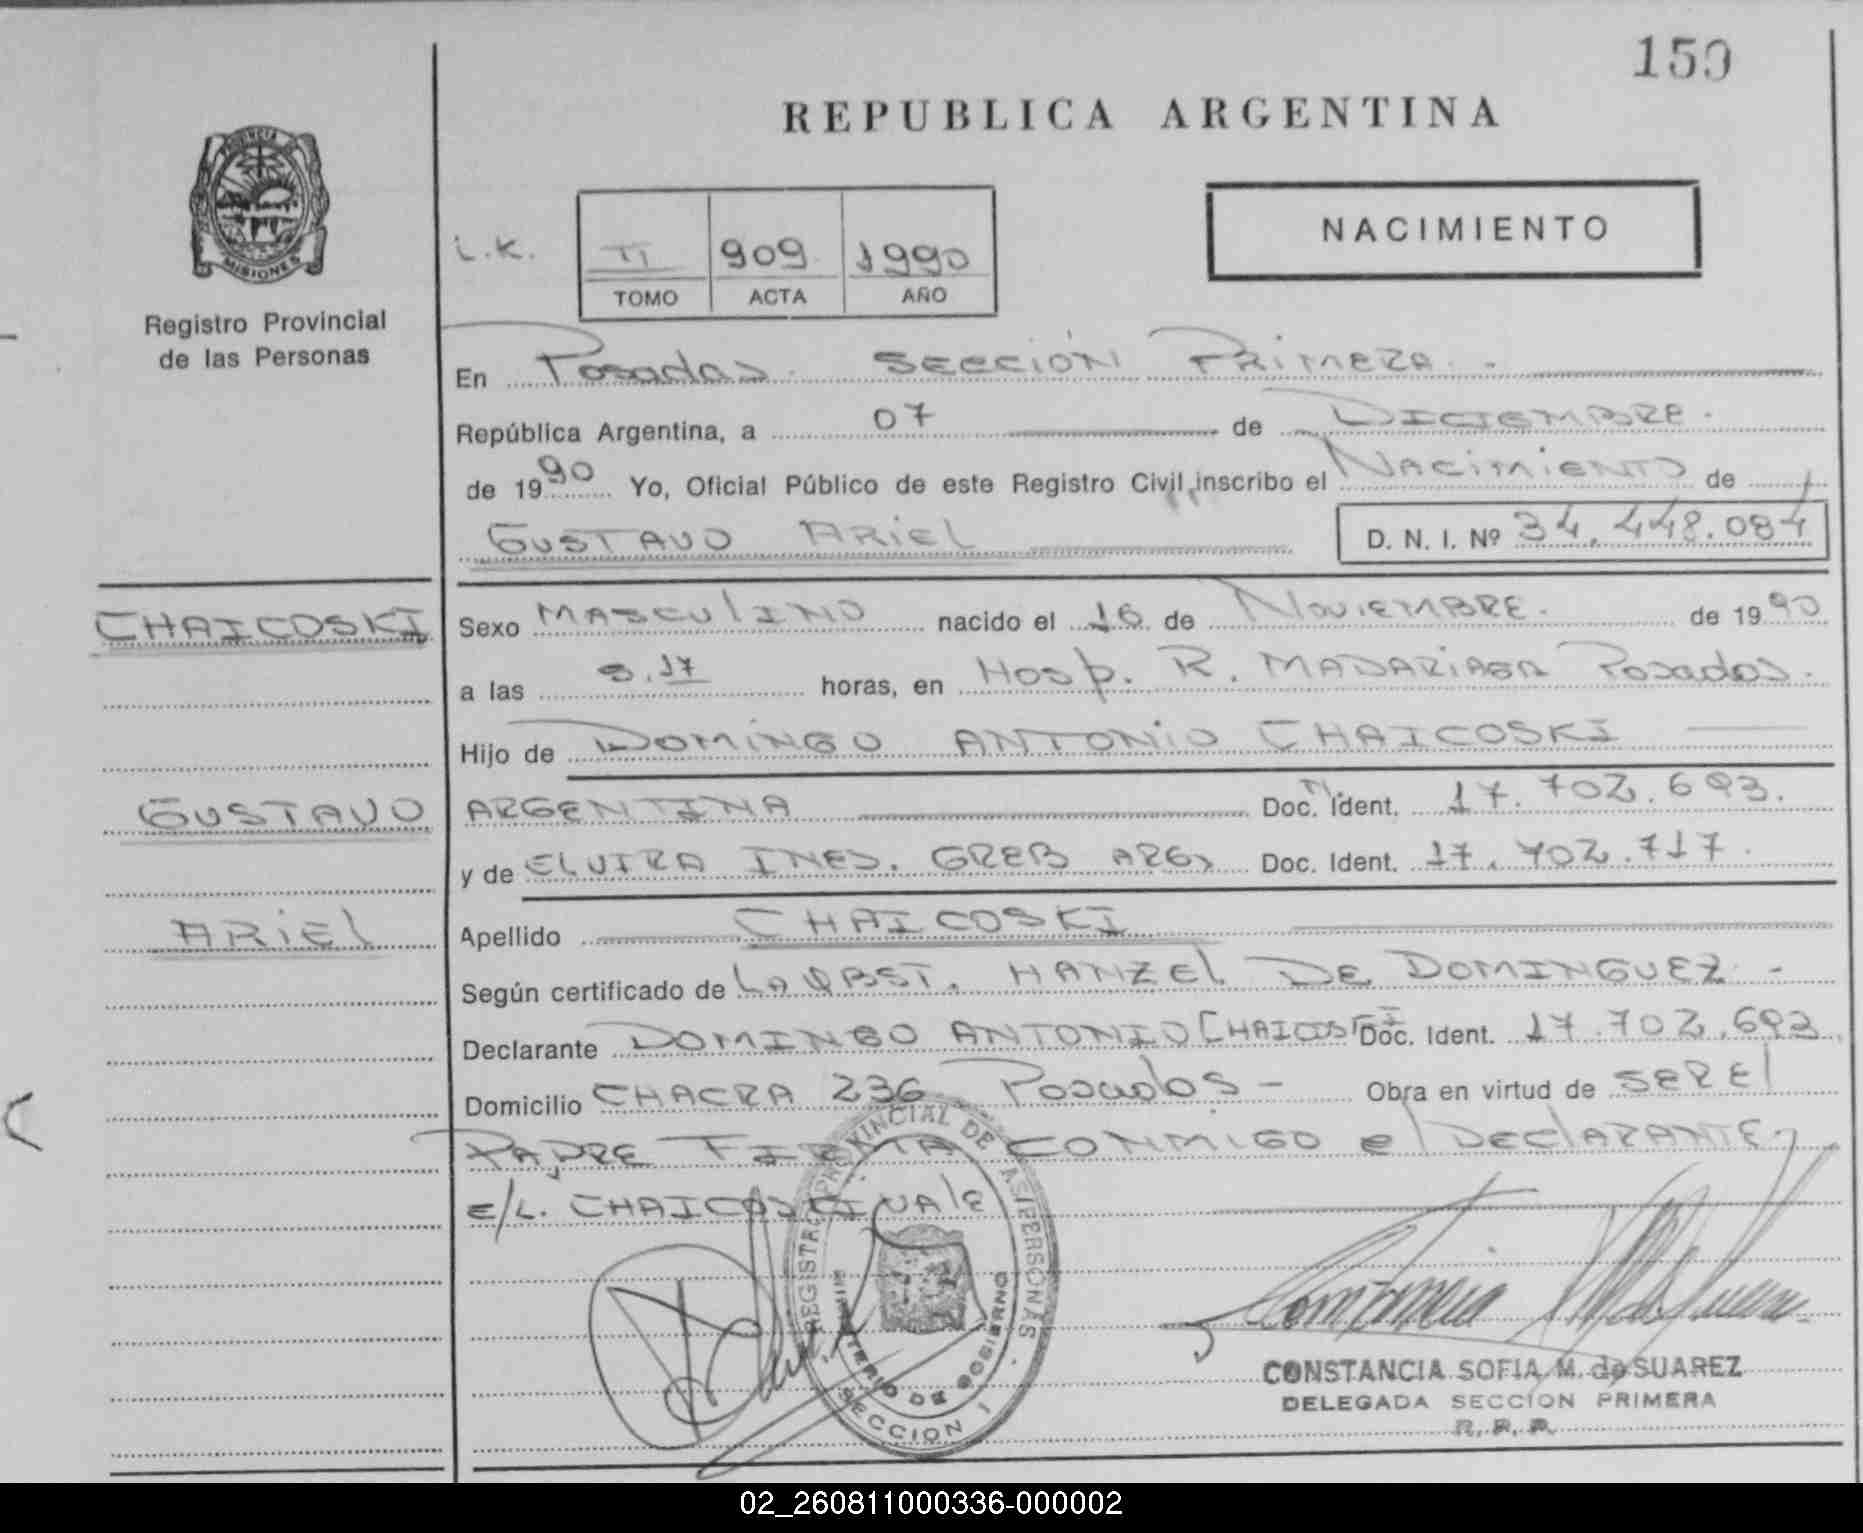 150
REPUBLICA ARGENTINA
PROVINCIA DE
MISIONES
Registro Provincial
de las Personas
L.K.
II 909 1990
TOMO ACTA AÑO
NACIMIENTO
En Posadas. SECCIÓN PRIMERA.
República Argentina, a 07 de DICIEMBRE.
de 1990 Yo, Oficial Público de este Registro Civil, inscribo el NACIMIENTO de
GUSTAVO ARIEL D. N. I. Nº 34.448.084
CHAICOSKI
Sexo MASCULINO nacido el 16 de NOVIEMBRE. de 1990
a las 8.17 horas, en Hosp. R. MADARIAGA Posadas.
Hijo de DOMINGO ANTONIO CHAICOSKI
GUSTAVO
ARGENTINA Doc. Ident. 17.702.693.
y de ELVIRA INES. GREB ARG. Doc. Ident. 17.702.717.
ARIEL
Apellido CHAICOSKI
Según certificado de LA OBST. HANZEL DE DOMINGUEZ. -
Declarante DOMINGO ANTONIO CHAICOSKI Doc. Ident. 17.702.693.
Domicilio CHACRA 236 Posadas - Obra en virtud de SER El
PADRE FIRMA CONMIGO el DEClARANTE
E/L. CHAICOSKI VALE
REGISTRO PROVINCIAL DE LAS PERSONAS
MINISTERIO DE GOBIERNO
SECCION 1
CONSTANCIA SOFIA M. de SUAREZ
DELEGADA SECCION PRIMERA
R. P. P.
02_260811000336-000002